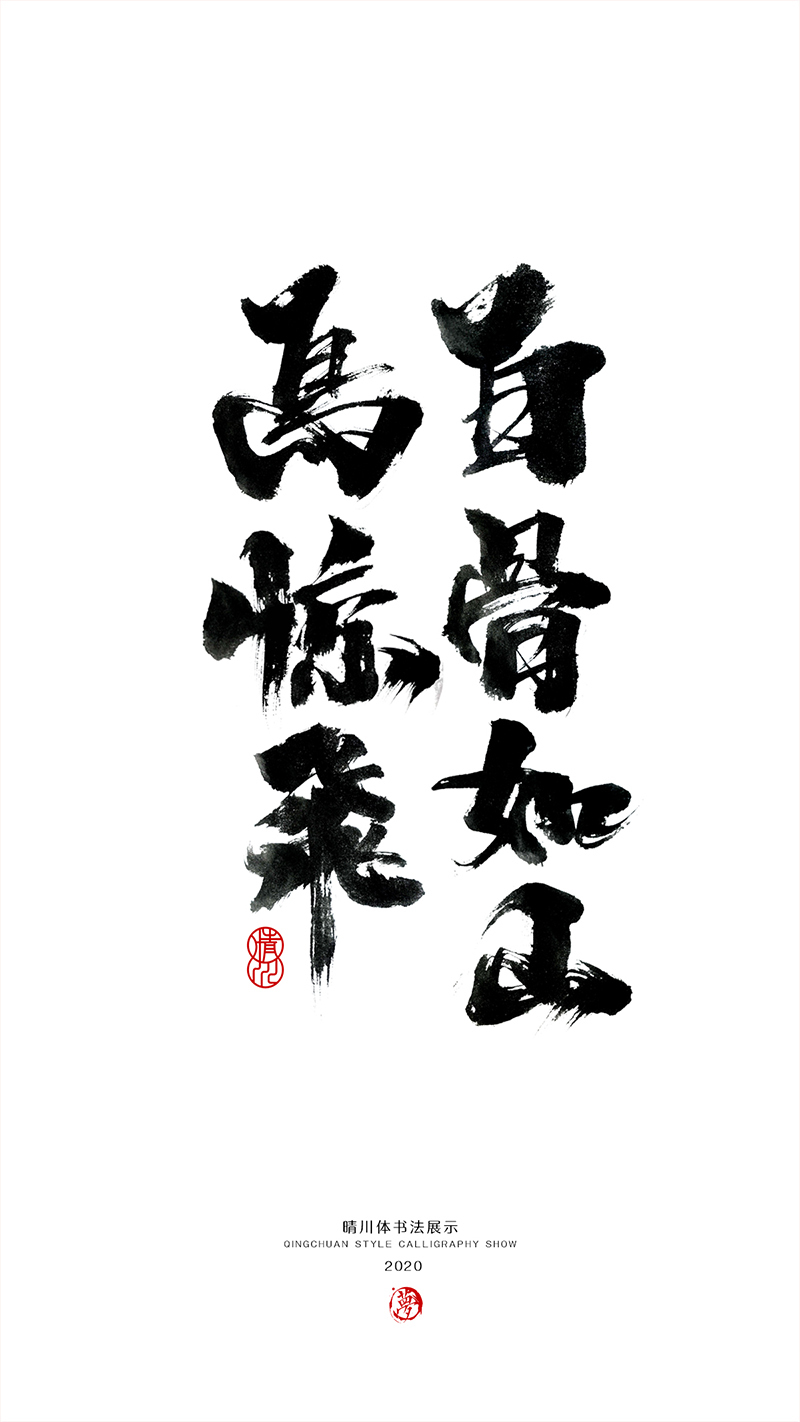 白骨如山
鸟惊飛
晴川
晴川体书法展示
QINGCHUAN STYLE CALLIGRAPHY SHOW
2020
夢